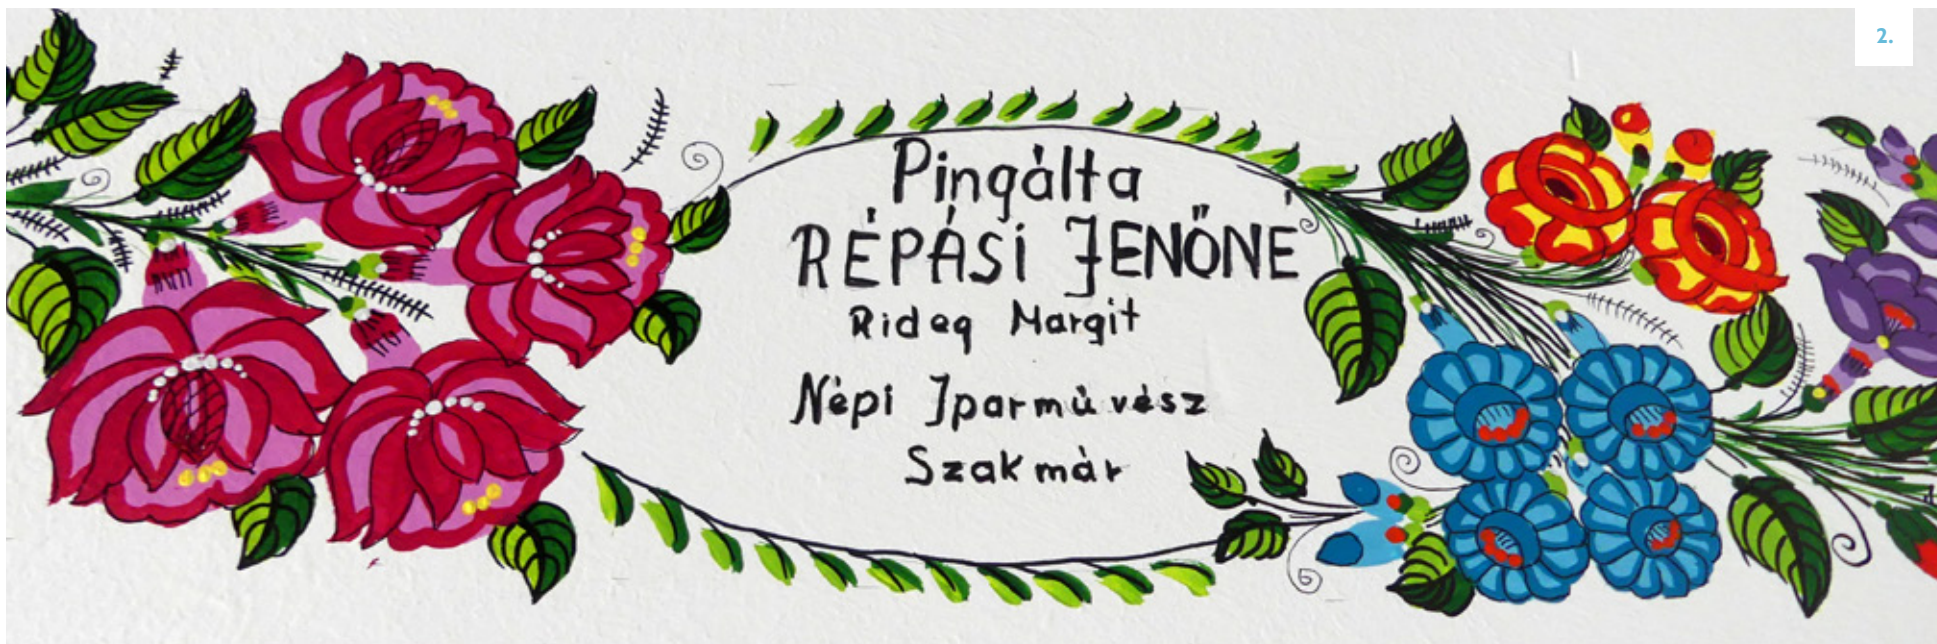 2.
Pingálta
RÉPÁSi JENŐNÉ
Rideg Margit
Népi Iparművész
Szakmár